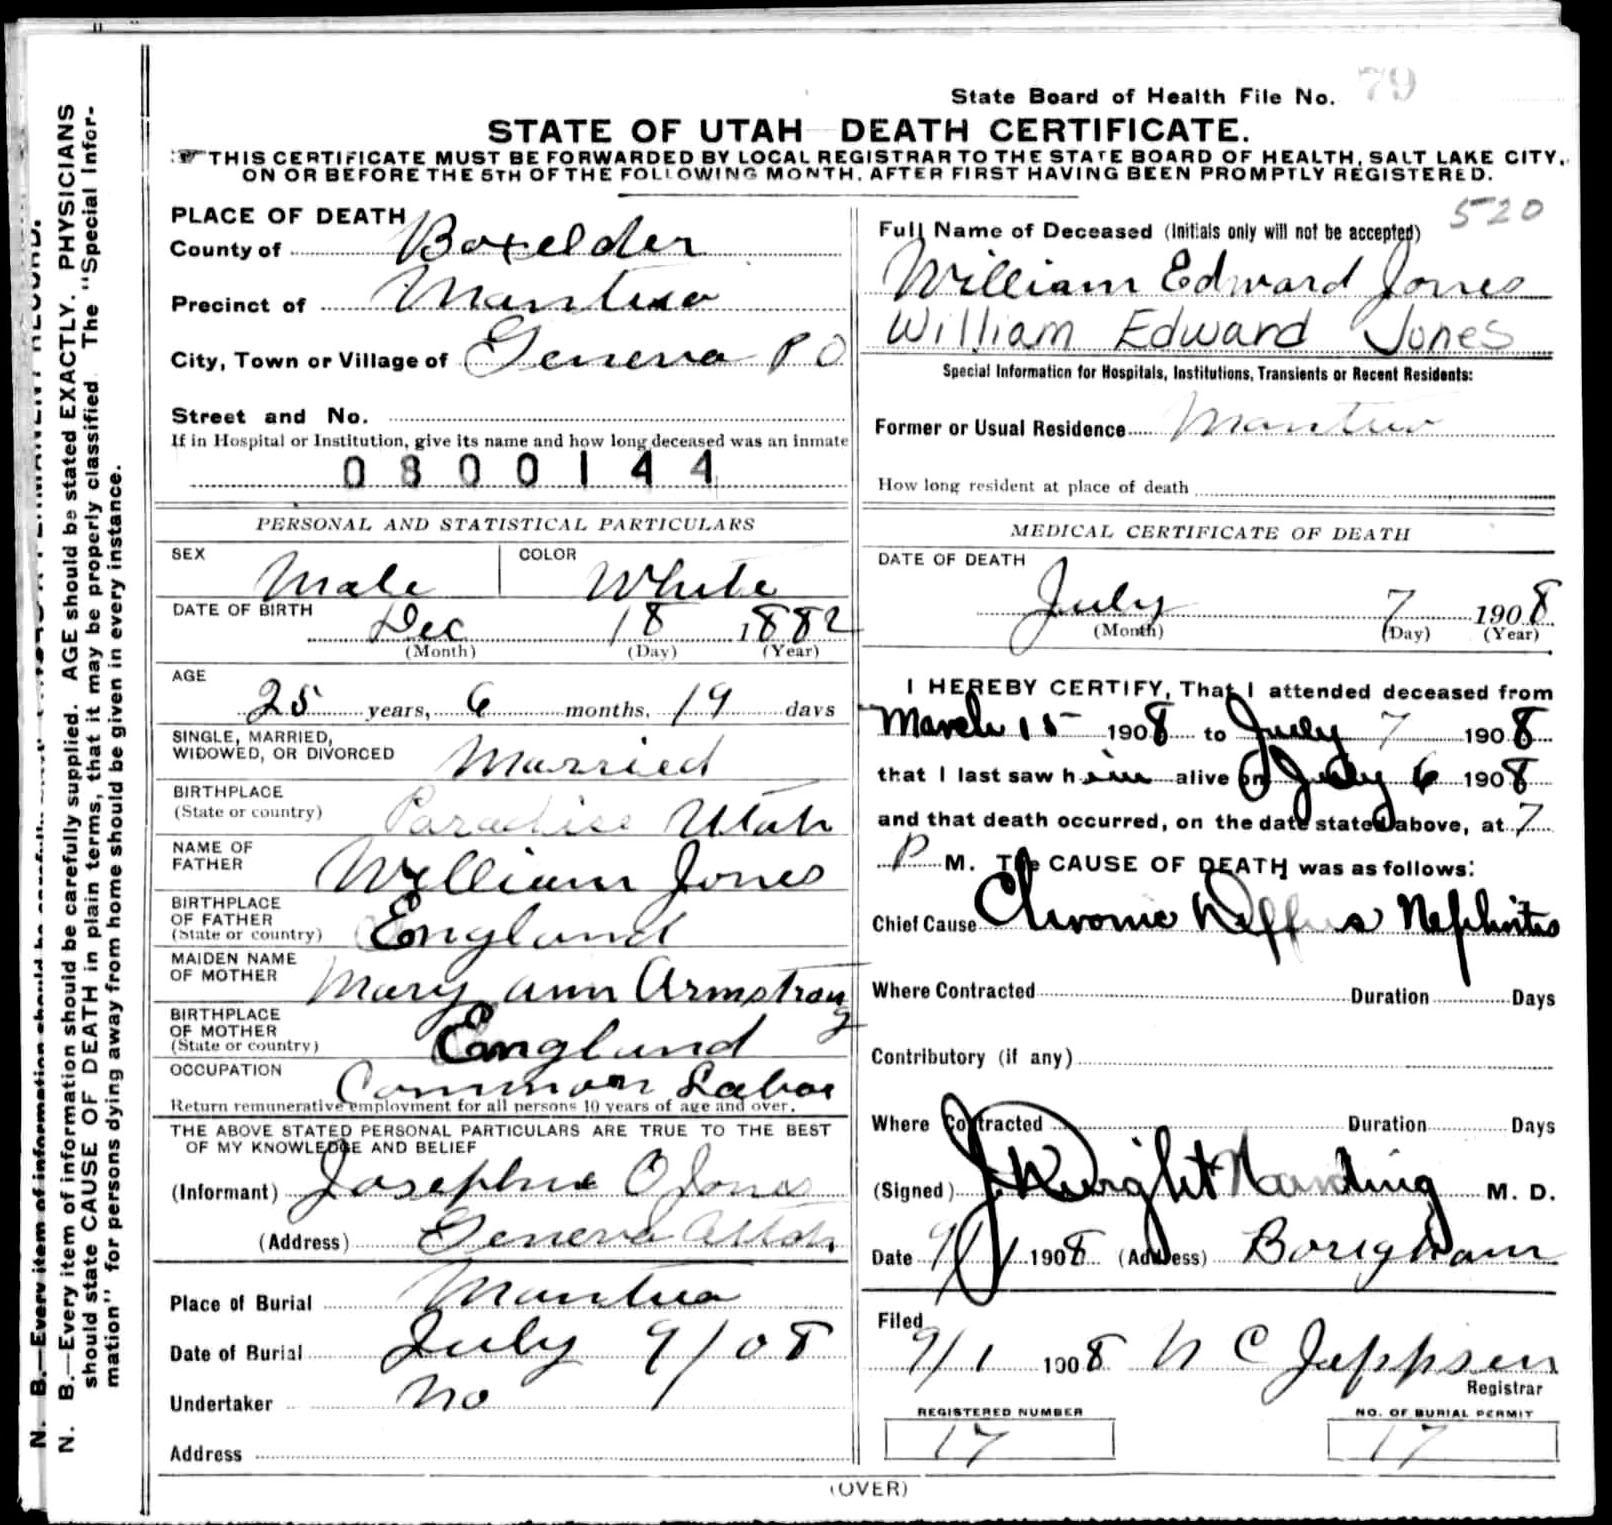 State Board of Health File No. 79
STATE OF UTAH DEATH CERTIFICATE.
THIS CERTIFICATE MUST BE FORWARDED BY LOCAL REGISTRAR TO THE STATE BOARD OF HEALTH, SALT LAKE CITY,
ON OR BEFORE THE 5TH OF THE FOLLOWING MONTH, AFTER FIRST HAVING BEEN PROMPTLY REGISTERED.
PLACE OF DEATH
County of Boxelder
Precinct of Mantua
City, Town or Village of Geneva P O
Street and No.
If in Hospital or Institution, give its name and how long deceased was an inmate
0800144
PERSONAL AND STATISTICAL PARTICULARS
SEX Male COLOR White
DATE OF BIRTH Dec 18 1882
(Month) (Day) (Year)
AGE
25 years, 6 months, 19 days
SINGLE, MARRIED,
WIDOWED, OR DIVORCED Married
BIRTHPLACE
(State or country) Paradise Utah
NAME OF
FATHER William Jones
BIRTHPLACE
OF FATHER
(State or country) England
MAIDEN NAME
OF MOTHER Mary ann Armstrong
BIRTHPLACE
OF MOTHER
(State or country) England
OCCUPATION Common Labor
Return remunerative employment for all persons 10 years of age and over.
THE ABOVE STATED PERSONAL PARTICULARS ARE TRUE TO THE BEST
OF MY KNOWLEDGE AND BELIEF
(Informant) Josephine O Jones
(Address) Geneva Utah
Place of Burial Mantua
Date of Burial July 9/08
Undertaker No
Address
520
Full Name of Deceased (Initials only will not be accepted)
William Edward Jones
William Edward Jones
Special Information for Hospitals, Institutions, Transients or Recent Residents:
Former or Usual Residence Mantua
How long resident at place of death
MEDICAL CERTIFICATE OF DEATH
DATE OF DEATH
July 7 1908
(Month) (Day) (Year)
I HEREBY CERTIFY, That I attended deceased from
March 15 1908 to July 7 1908
that I last saw him alive on July 6 1908
and that death occurred, on the date stated above, at 7
P M. The CAUSE OF DEATH was as follows:
Chief Cause Chronic Diffus Nephritis
Where Contracted Duration Days
Contributory (if any)
Where Contracted Duration Days
(Signed) J Dwight Harding M. D.
Date 9/1 1908 (Address) Brigham
Filed
9/1 1908 N C Jeppsen
Registrar
REGISTERED NUMBER
17
NO. OF BURIAL PERMIT
17
(OVER)
N. B.—Every item of information should be carefully supplied. AGE should be stated EXACTLY. PHYSICIANS
should state CAUSE OF DEATH in plain terms, that it may be properly classified. The "Special Infor-
mation" for persons dying away from home should be given in every instance.